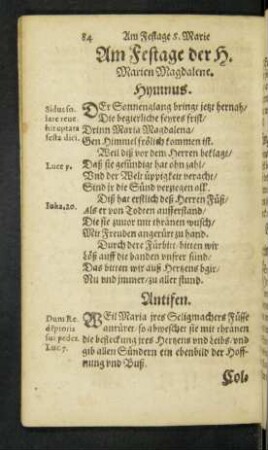 84 Am Festage S. Marie
Am Festage der H.
Marien Magdalene.
Hymnus.
DEr Sonnenglang bringt jetzt hernah/
Die begierliche feyres frist/
Drinn Maria Magdalena/
Gen Himmel frölich kommen ist.
Weil diß vor dem Herren beklagt/
Luce 7.
Daß sie gesündigt hat ohn zahl/
Vnd der Welt üppigkeit veracht/
Sind jr die Sünd verziegen all.
Diß hat erstlich deß Herren Füß/
Joha. 20.
als er von Todten aufferstand/
Die sie zuuor mit thränen wüsch/
Mit Freuden angerürt zu hand.
Durch dere Fürbitt bitten wir
Löß auff die banden vnser sünd/
Das bitten wir auß Hertzens bgir/
Nu vnd jmmer/zu aller stund.
Antifen.
Dum Re-
WEil Maria jres Seligmachers Füsse
anrüret/ so abweschet sie mit thränen
die befleckung jres Hertzens vnd Leibs/ vnd
Luc. 7.
gib allen Sündern ein ebenbild der Hoff-
nung vnd Buß.
Col-